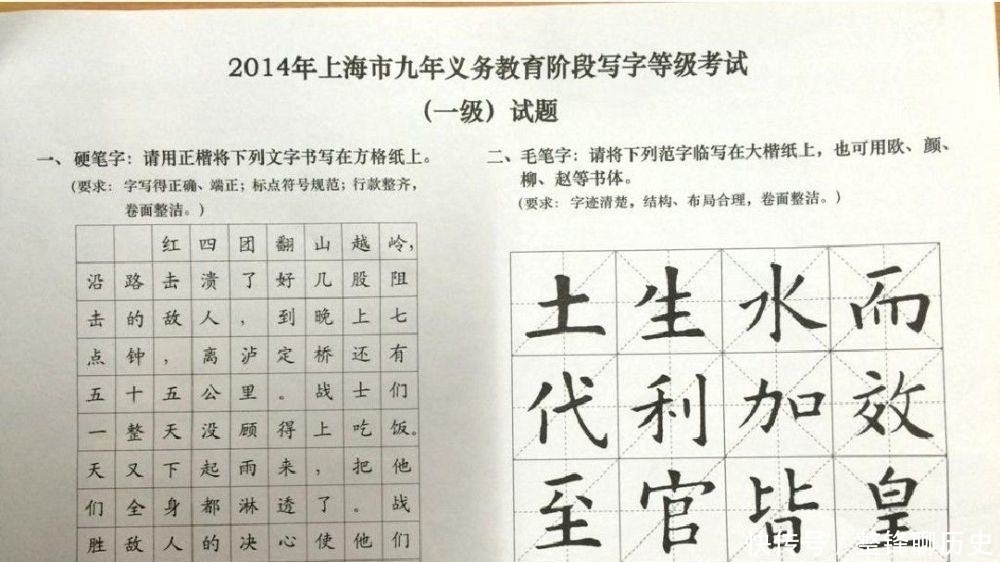 2014年上海市九年义务教育阶段写字等级考试
（一级）试题
一、硬笔字：请用正楷将下列文字书写在方格纸上。
（要求：字写得正确、端正；标点符号规范；行款整齐，
卷面整洁。）
红四团翻山越岭，
沿路击溃了好几股阻
击的敌人，到晚上七
点钟，离泸定桥还有
五十五公里。战士们
一整天没顾得上吃饭。
天又下起雨来，把他
们全身都淋透了。战
胜敌人的决心使他们
二、毛笔字：请将下列范字临写在大楷纸上，也可用欧、颜、
柳、赵等书体。
（要求：字迹清楚，结构、布局合理，卷面整洁。）
土生水而
代利加效
至官皆皇
快传号
聊历史